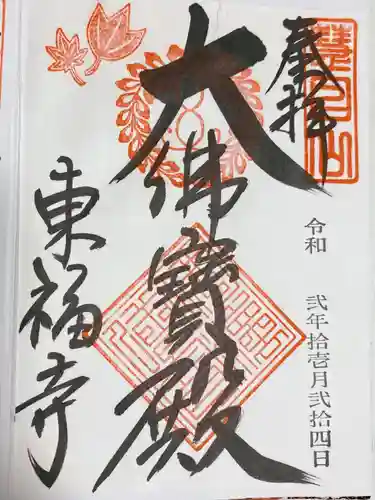 奉拝
慧日山
令和 弐年拾壱月弐拾四日
大佛寶殿
東福寺